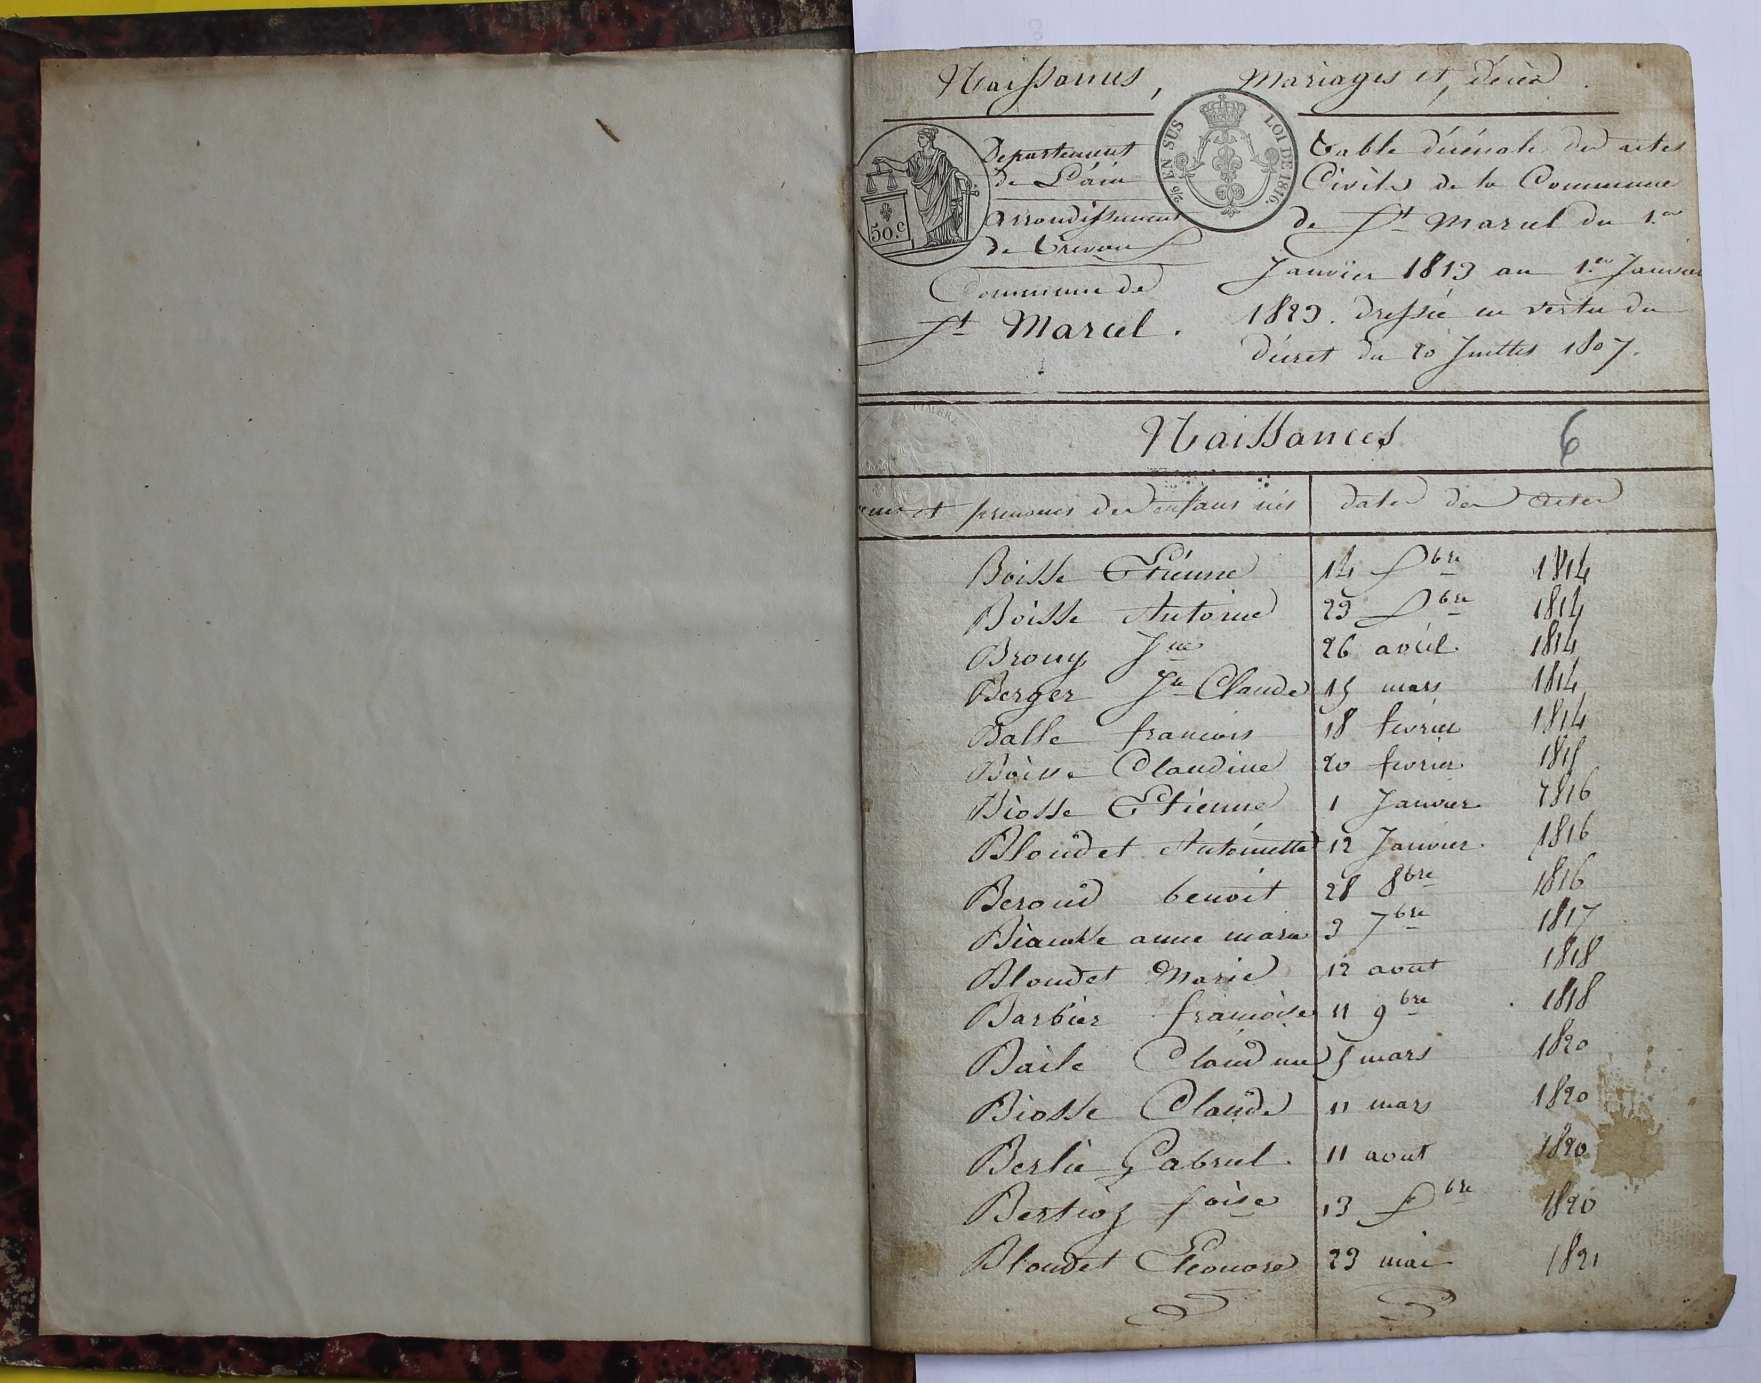 Naissances, Mariages et, décès.
Département
de L'ain
arrondissement
de Trévoux
Commune de
St Marcel.
50.c
2/10 EN SUS
LOI DE 1816.
Table décénale des actes
Civils de la Commune
de St Marcel du 1.er
Janvier 1813 au 1.er Janvier
1823. dressée en vertu du
décret du 20 Juillet 1807.
Naissances
6
et prenoms des enfans nés | dates des actes
Boisse Etienne 14 Xbre 1814
Boisse Antoine 23 Xbre 1814
Brouy Jne 26 avril 1814
Berger Jn Claude 15 mars 1814
Balle francois 18 fevrier 1814
Boisse Claudine 20 fevrier 1815
Biosse Etienne 1 Janvier 1816
Bloudet Antoinette 12 Janvier 1816
Beroud benoit 28 8bre 1816
anne marie 3 7bre 1817
Bloudet Marie 12 aout 1818
Barbier francoise 11 9bre 1818
Baile Claudine 5 mars 1820
Biosse Claude 11 mars 1820
Berlie Gabriel. 11 aout 1820
Bertioz foise 13 Xbre 1820
Bloudet Eléonore 23 mai 1821